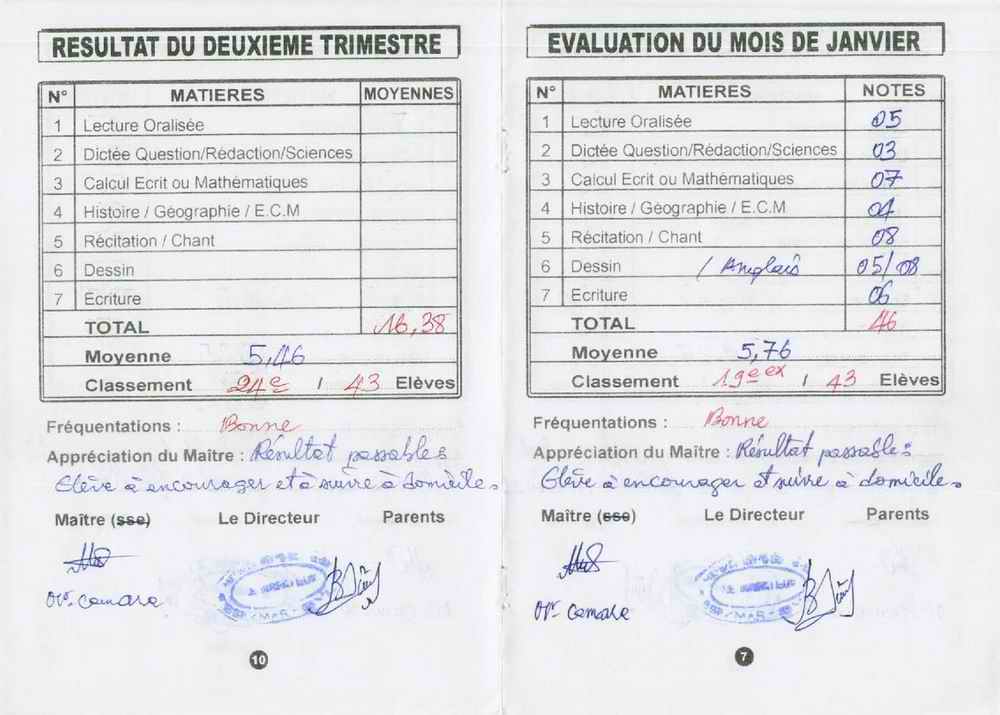 RESULTAT DU DEUXIEME TRIMESTRE
N° MATIERES MOYENNES
1 Lecture Oralisée
2 Dictée Question/Rédaction/Sciences
3 Calcul Ecrit ou Mathématiques
4 Histoire / Géographie / E.C.M
5 Récitation / Chant
6 Dessin
7 Ecriture
TOTAL 16,38
Moyenne 5,46
Classement 24e / 43 Elèves
Fréquentations : Bonne
Appréciation du Maître : Résultat passable.
Elève à encourager et à suivre à domicile.
Maître (sse) Le Directeur Parents
Mr. Camara
10
EVALUATION DU MOIS DE JANVIER
N° MATIERES NOTES
1 Lecture Oralisée 05
2 Dictée Question/Rédaction/Sciences 03
3 Calcul Ecrit ou Mathématiques 07
4 Histoire / Géographie / E.C.M 04
5 Récitation / Chant 08
6 Dessin / Anglais 05/08
7 Ecriture 06
TOTAL 46
Moyenne 5,76
Classement 19e ex / 43 Elèves
Fréquentations : Bonne
Appréciation du Maître : Résultat passable.
Elève à encourager et suivre à domicile.
Maître (sse) Le Directeur Parents
Mr. Camara
7